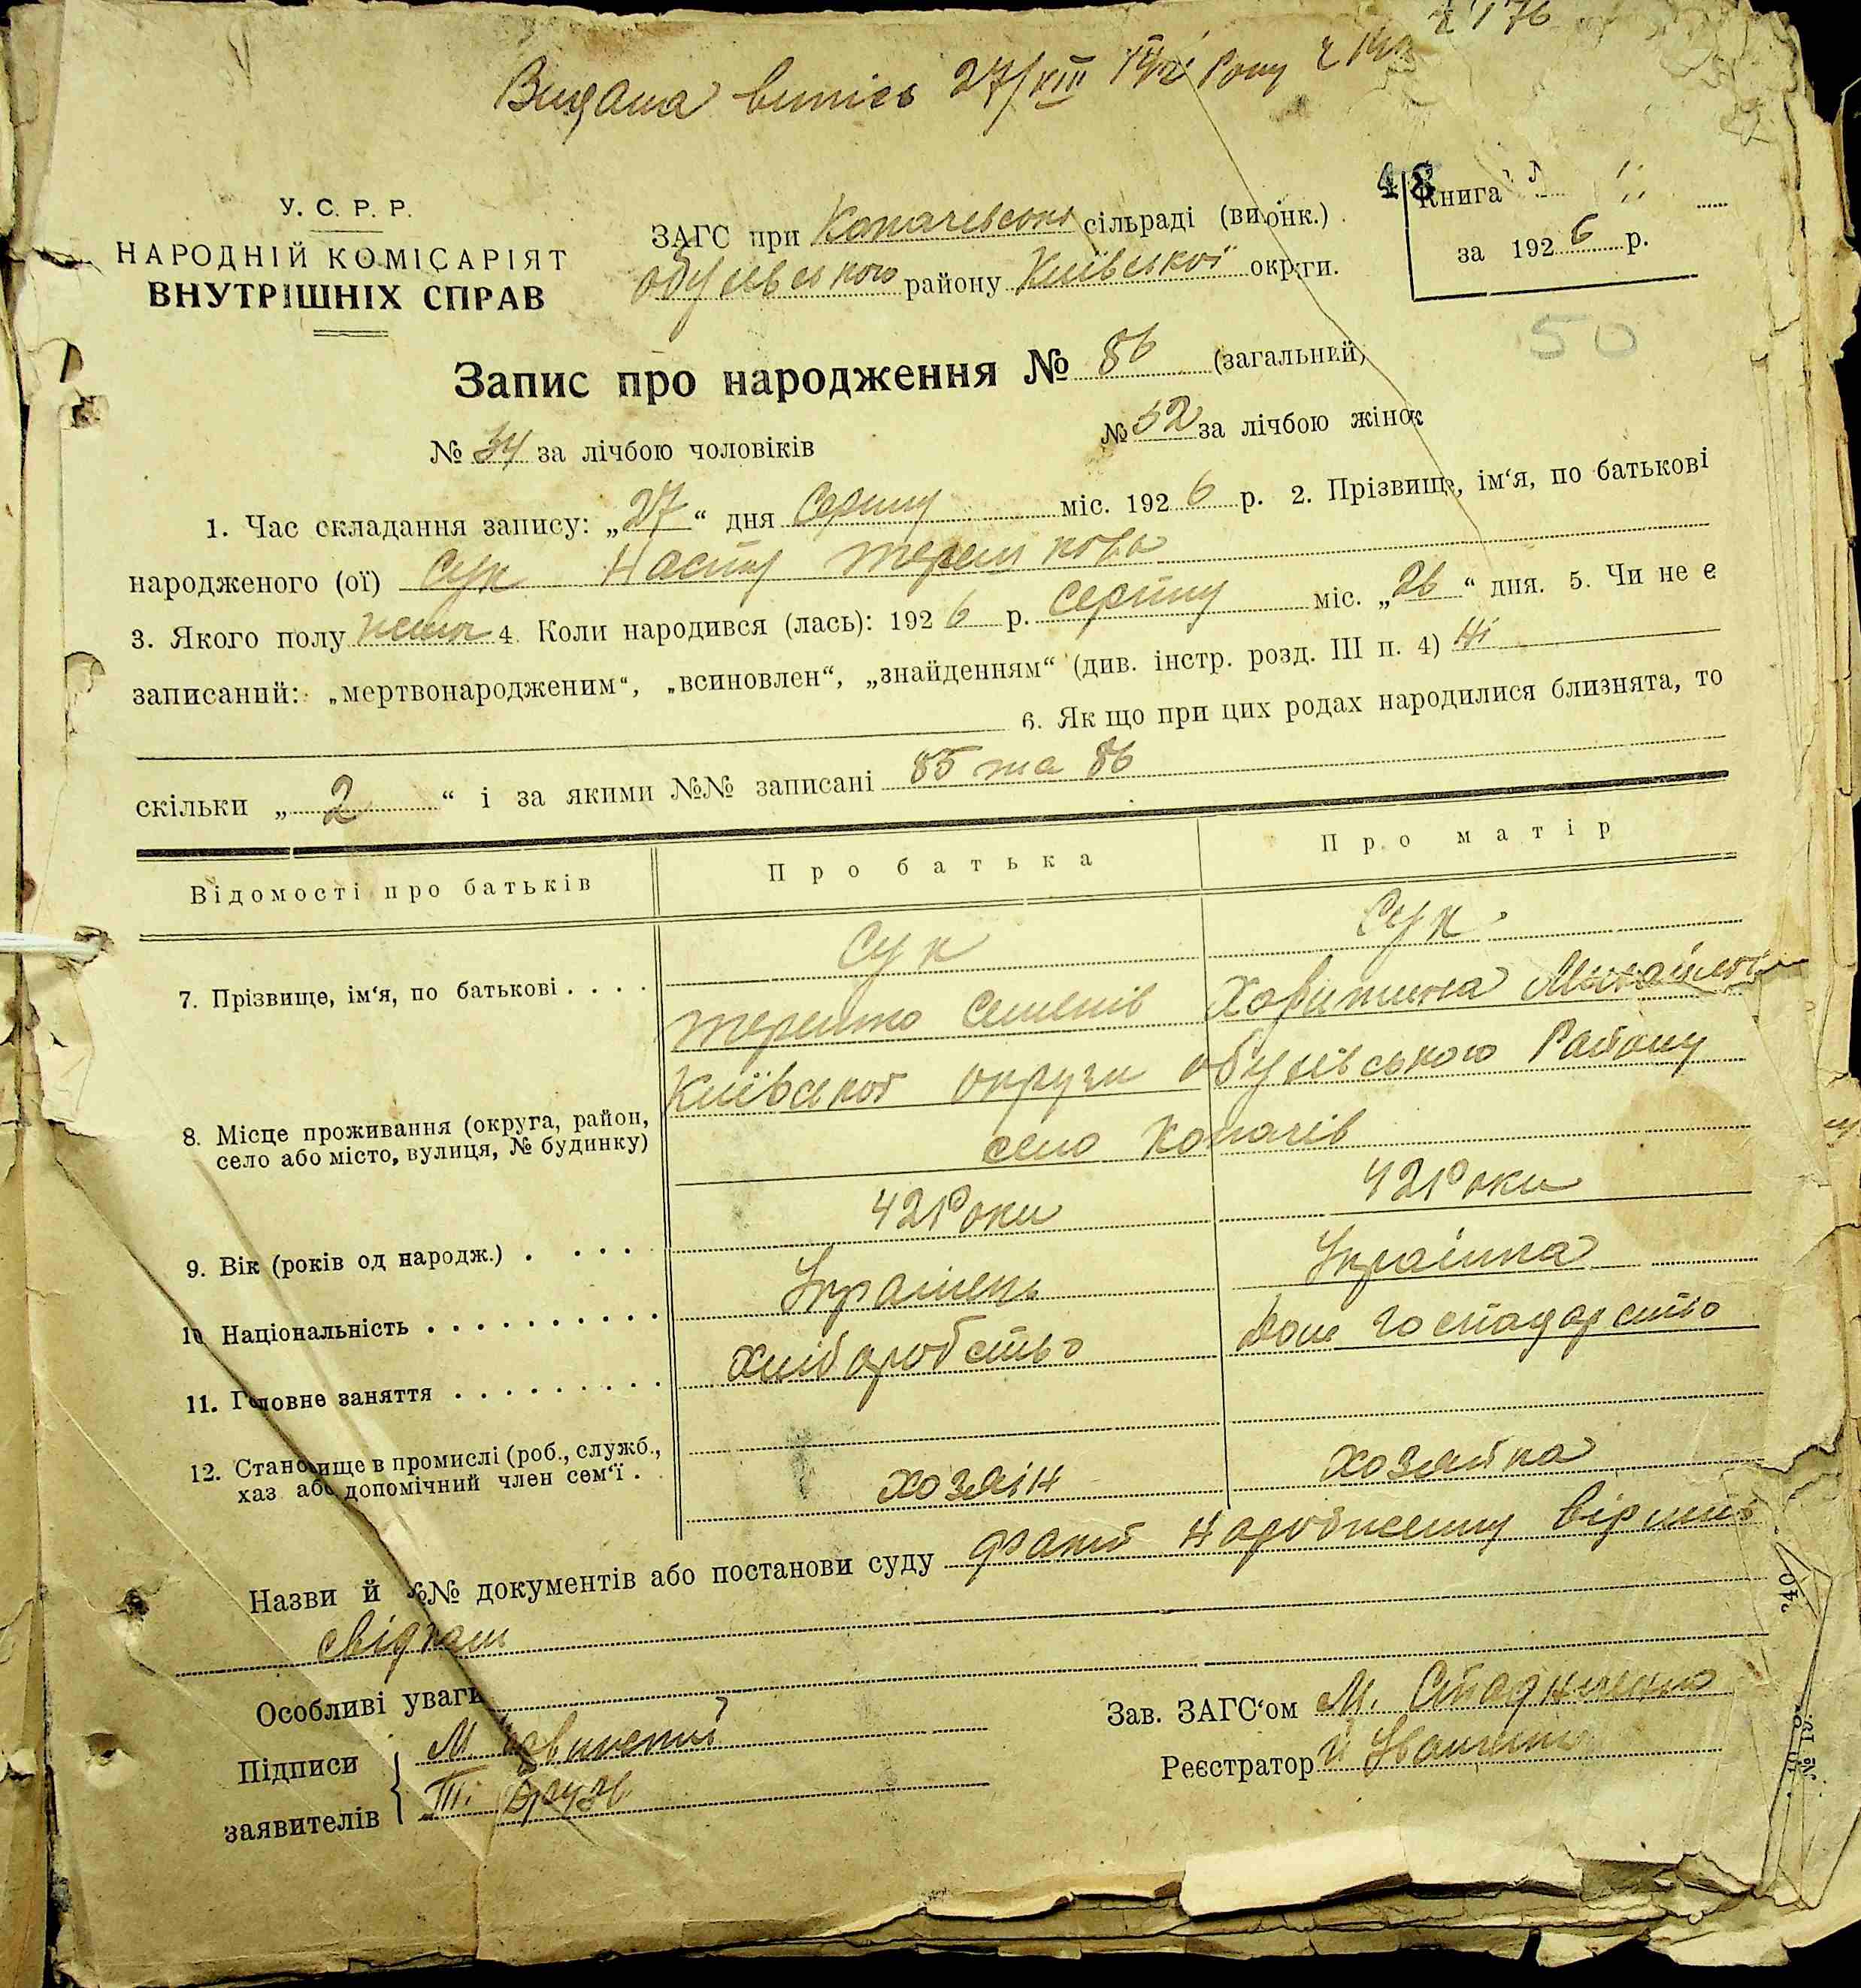 Видана випись 27/VIII Року
У. С. Р. Р.
НАРОДНІЙ КОМІСАРІЯТ
ВНУТРІШНІХ СПРАВ
ЗАГС при Копачевсько сільраді (виконк.)
обухівського району Київської округи.
48
Книга
за 1926 р.
50
Запис про народження № 86 (загальний)
№ 34 за лічбою чоловіків № 52 за лічбою жінок
1. Час складання запису: „27“ дня Серпну міс. 1926 р. 2. Прізвище, ім‘я, по батькові
народженого (ої) Сук Насту
3. Якого полу 4. Коли народився (лась): 1926 р. серпну міс. „26“ дня. 5. Чи не є
записаний: „мертвонародженим“, „всиновлен“, „знайденням“ (див. інстр. розд. III п. 4) Ні
6. Як що при цих родах народилися близнята, то
скільки „2“ і за якими №№ записані 85 та 86
Відомості про батьків Про батька Про матір
7. Прізвище, ім‘я, по батькові . . . . Сук Сук
Терешко Семенів Хавитина Михайлов
8. Місце проживання (округа, район, село або місто, вулиця, № будинку) Київської округи обухівського Району
село Копачів
9. Вік (років од народж.) . . . . 42 Роки 42 Роки
10. Національність . . . . . . . . . . Українець Українка
11. Головне заняття . . . . . . . . . Хліборобство Дом Господарство
12. Становище в промислі (роб., служб.,
хаз або допомічний член сем‘ї . . хозяін хозяйка
Назви й №№ документів або постанови суду факт народженну
свідками
Особливі уваги
Підписи М.
заявителів Т.
Зав. ЗАГС‘ом М. Стадниченко
Реєстратор